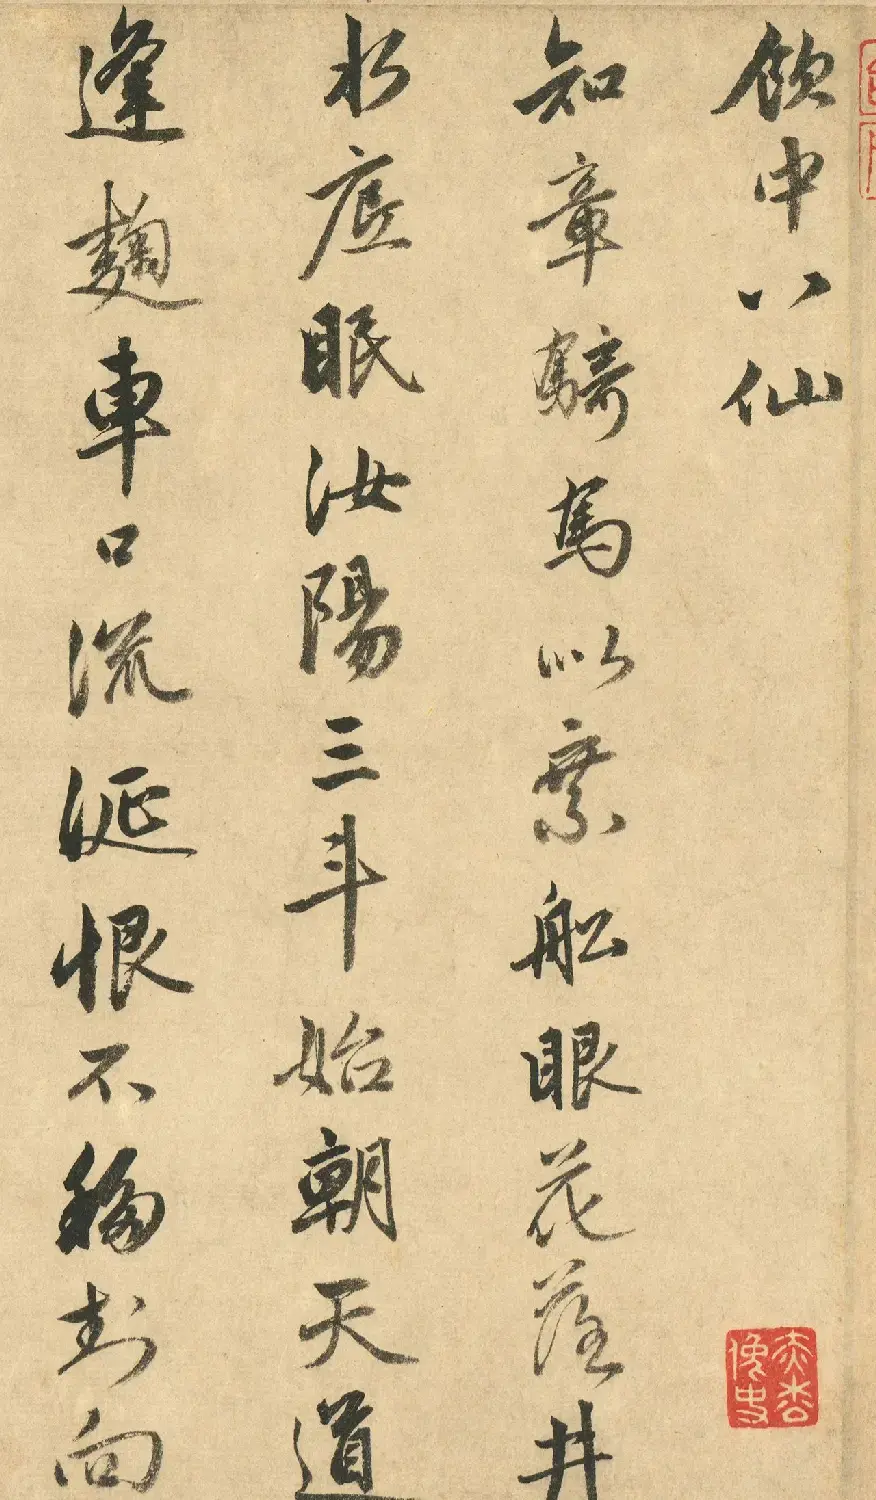 飲中八仙
知章騎馬似乘船眼花落井
水底眠汝陽三斗始朝天道
逢麴車口流涎恨不移封向